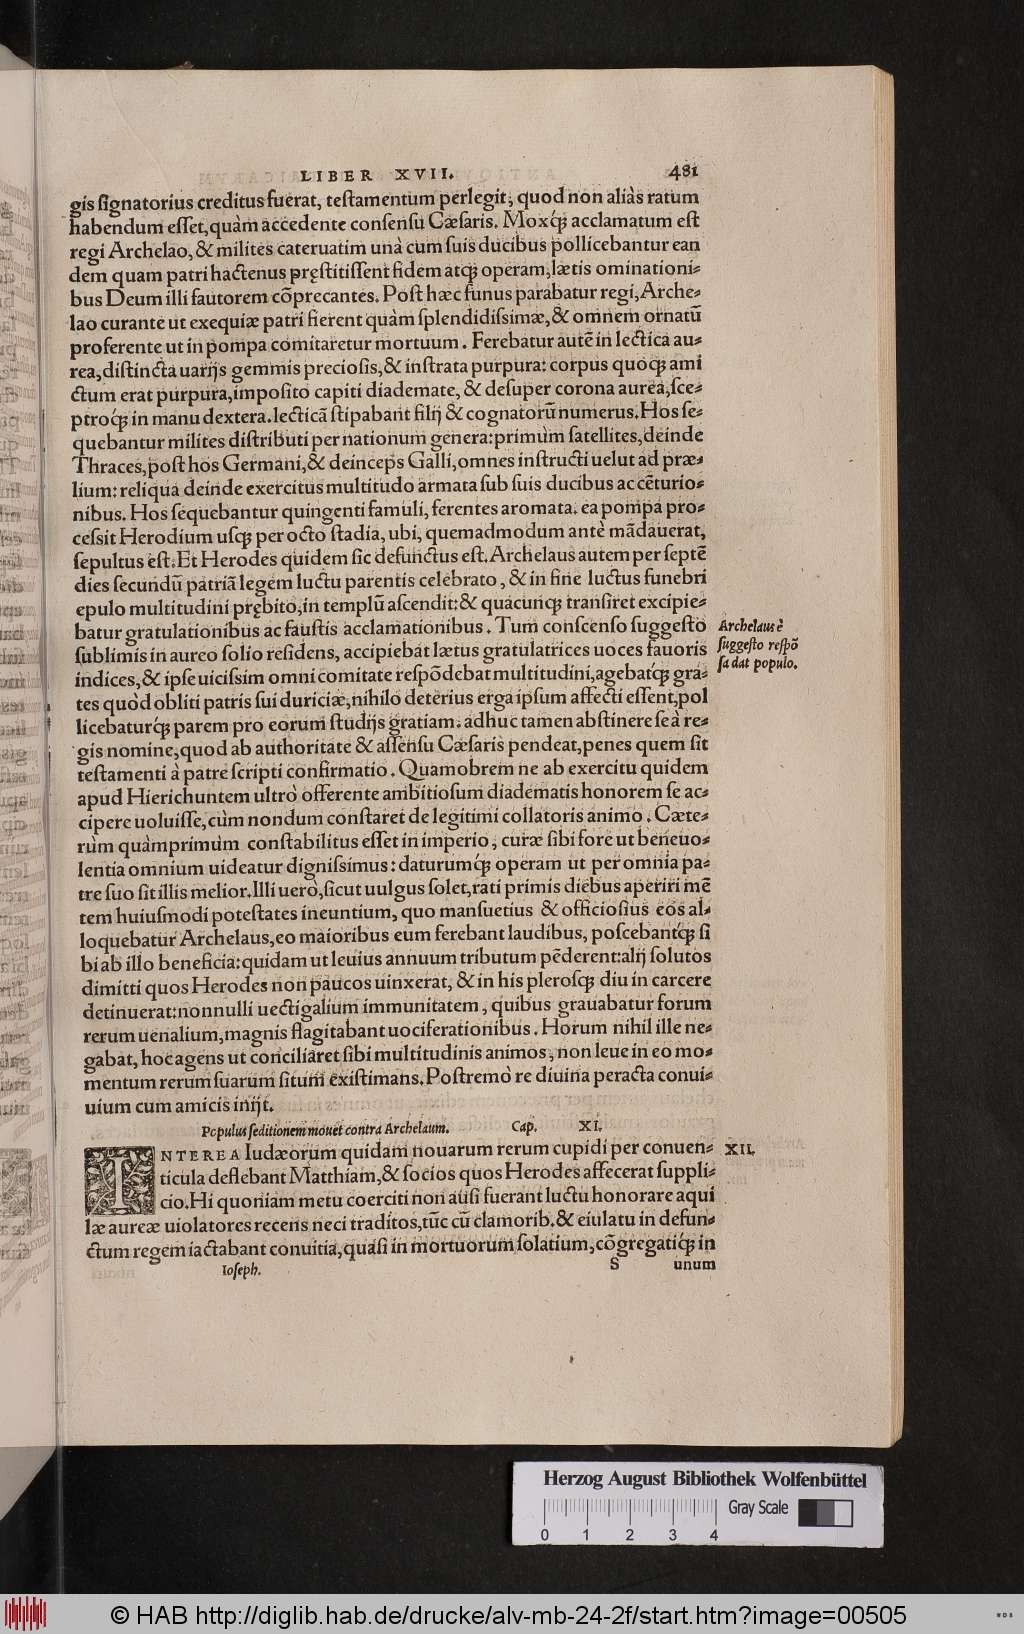 LIBER XVII. 481
gis ſignatorius creditus fuerat, teſtamentum perlegit, quod non aliàs ratum
habendum eſſet, quàm accedente conſenſu Cæſaris. Moxq́ꝫ acclamatum eſt
regi Archelao, & milites cateruatim unà cum ſuis ducibus pollicebantur ean
dem quam patri hactenus pręſtitiſſent fidem atqꝫ operam, lætis ominationi⸗
bus Deum illi fautorem cōprecantes. Poſt hæc funus parabatur regi, Arche⸗
lao curante ut exequiæ patri fierent quàm ſplendidiſſimæ, & omnem ornatū
proferente ut in pompa comitaretur mortuum. Ferebatur autē in lectica au⸗
rea, diſtincta uarijs gemmis precioſis, & inſtrata purpura: corpus quoqꝫ ami
ctum erat purpura, impoſito capiti diademate, & deſuper corona aurea, ſce⸗
ptroq́ꝫ in manu dextera. lecticā ſtipabant filij & cognatorū numerus. Hos ſe⸗
quebantur milites diſtributi per nationum genera: primùm ſatellites, deinde
Thraces, poſt hos Germani, & deinceps Galli, omnes inſtructi uelut ad præ⸗
lium: reliqua deinde exercitus multitudo armata ſub ſuis ducibus ac cēturio⸗
nibus. Hos ſequebantur quingenti famuli, ferentes aromata. ea pompa pro⸗
ceſsit Herodium uſqꝫ per octo ſtadia, ubi, quemadmodum antè mādauerat,
ſepultus eſt. Et Herodes quidem ſic defunctus eſt. Archelaus autem per ſeptē
dies ſecundū patriā legem luctu parentis celebrato, & in fine luctus funebri
epulo multitudini prębito, in templū aſcendit: & quacunqꝫ tranſiret excipie⸗
batur gratulationibus ac fauſtis acclamationibus. Tum conſcenſo ſuggeſto
ſublimis in aureo ſolio reſidens, accipiebat lætus gratulatrices uoces fauoris
indices, & ipſe uiciſsim omni comitate reſpōdebat multitudini, agebatq́ꝫ gra⸗
tes quòd obliti patris ſui duriciæ, nihilo deterius erga ipſum affecti eſſent, pol
licebaturq́ꝫ parem pro eorum ſtudijs gratiam. adhuc tamen abſtinere ſe à re⸗
gis nomine, quod ab authoritate & aſſenſu Cæſaris pendeat, penes quem ſit
teſtamenti à patre ſcripti confirmatio. Quamobrem ne ab exercitu quidem
apud Hierichuntem ultrò offerente ambitioſum diadematis honorem ſe ac⸗
cipere uoluiſſe, cùm nondum conſtaret de legitimi collatoris animo. Cæte⸗
rùm quàmprimùm conſtabilitus eſſet in imperio, curæ ſibi fore ut beneuo⸗
lentia omnium uideatur digniſsimus: daturumq́ꝫ operam ut per omnia pa⸗
tre ſuo ſit illis melior. Illi uerò, ſicut uulgus ſolet, rati primis diebus aperiri mē
tem huiuſmodi poteſtates ineuntium, quo manſuetius & officioſius eos al⸗
loquebatur Archelaus, eo maioribus eum ferebant laudibus, poſcebantq́ꝫ ſi
bi ab illo beneficia: quidam ut leuius annuum tributum pēderent: alij ſolutos
dimitti quos Herodes non paucos uinxerat, & in his pleroſqꝫ diu in carcere
detinuerat: nonnulli uectigalium immunitatem, quibus grauabatur forum
rerum uenalium, magnis flagitabant uociferationibus. Horum nihil ille ne⸗
gabat, hoc agens ut conciliaret ſibi multitudinis animos, non leue in eo mo⸗
mentum rerum ſuarum ſitum exiſtimans. Poſtremò re diuina peracta conui⸗
uium cum amicis inijt.
Archelaus è
ſuggeſto reſpō
ſa dat populo.
Populus ſeditionem mouet contra Archelaum. Cap. XI.
INTEREA Iudæorum quidam nouarum rerum cupidi per conuen⸗ XII.
ticula deflebant Matthiam, & ſocios quos Herodes affecerat ſuppli⸗
cio. Hi quoniam metu coerciti non auſi fuerant luctu honorare aqui
læ aureæ uiolatores recens neci traditos, tūc cū clamorib. & eiulatu in defun⸗
ctum regem iactabant conuitia, quaſi in mortuorum ſolatium, cōgregatiq́ꝫ in
Ioſeph. S unum
Herzog August Bibliothek Wolfenbüttel
Gray Scale
0 1 2 3 4
© HAB http://diglib.hab.de/drucke/alv-mb-24-2f/start.htm?image=00505